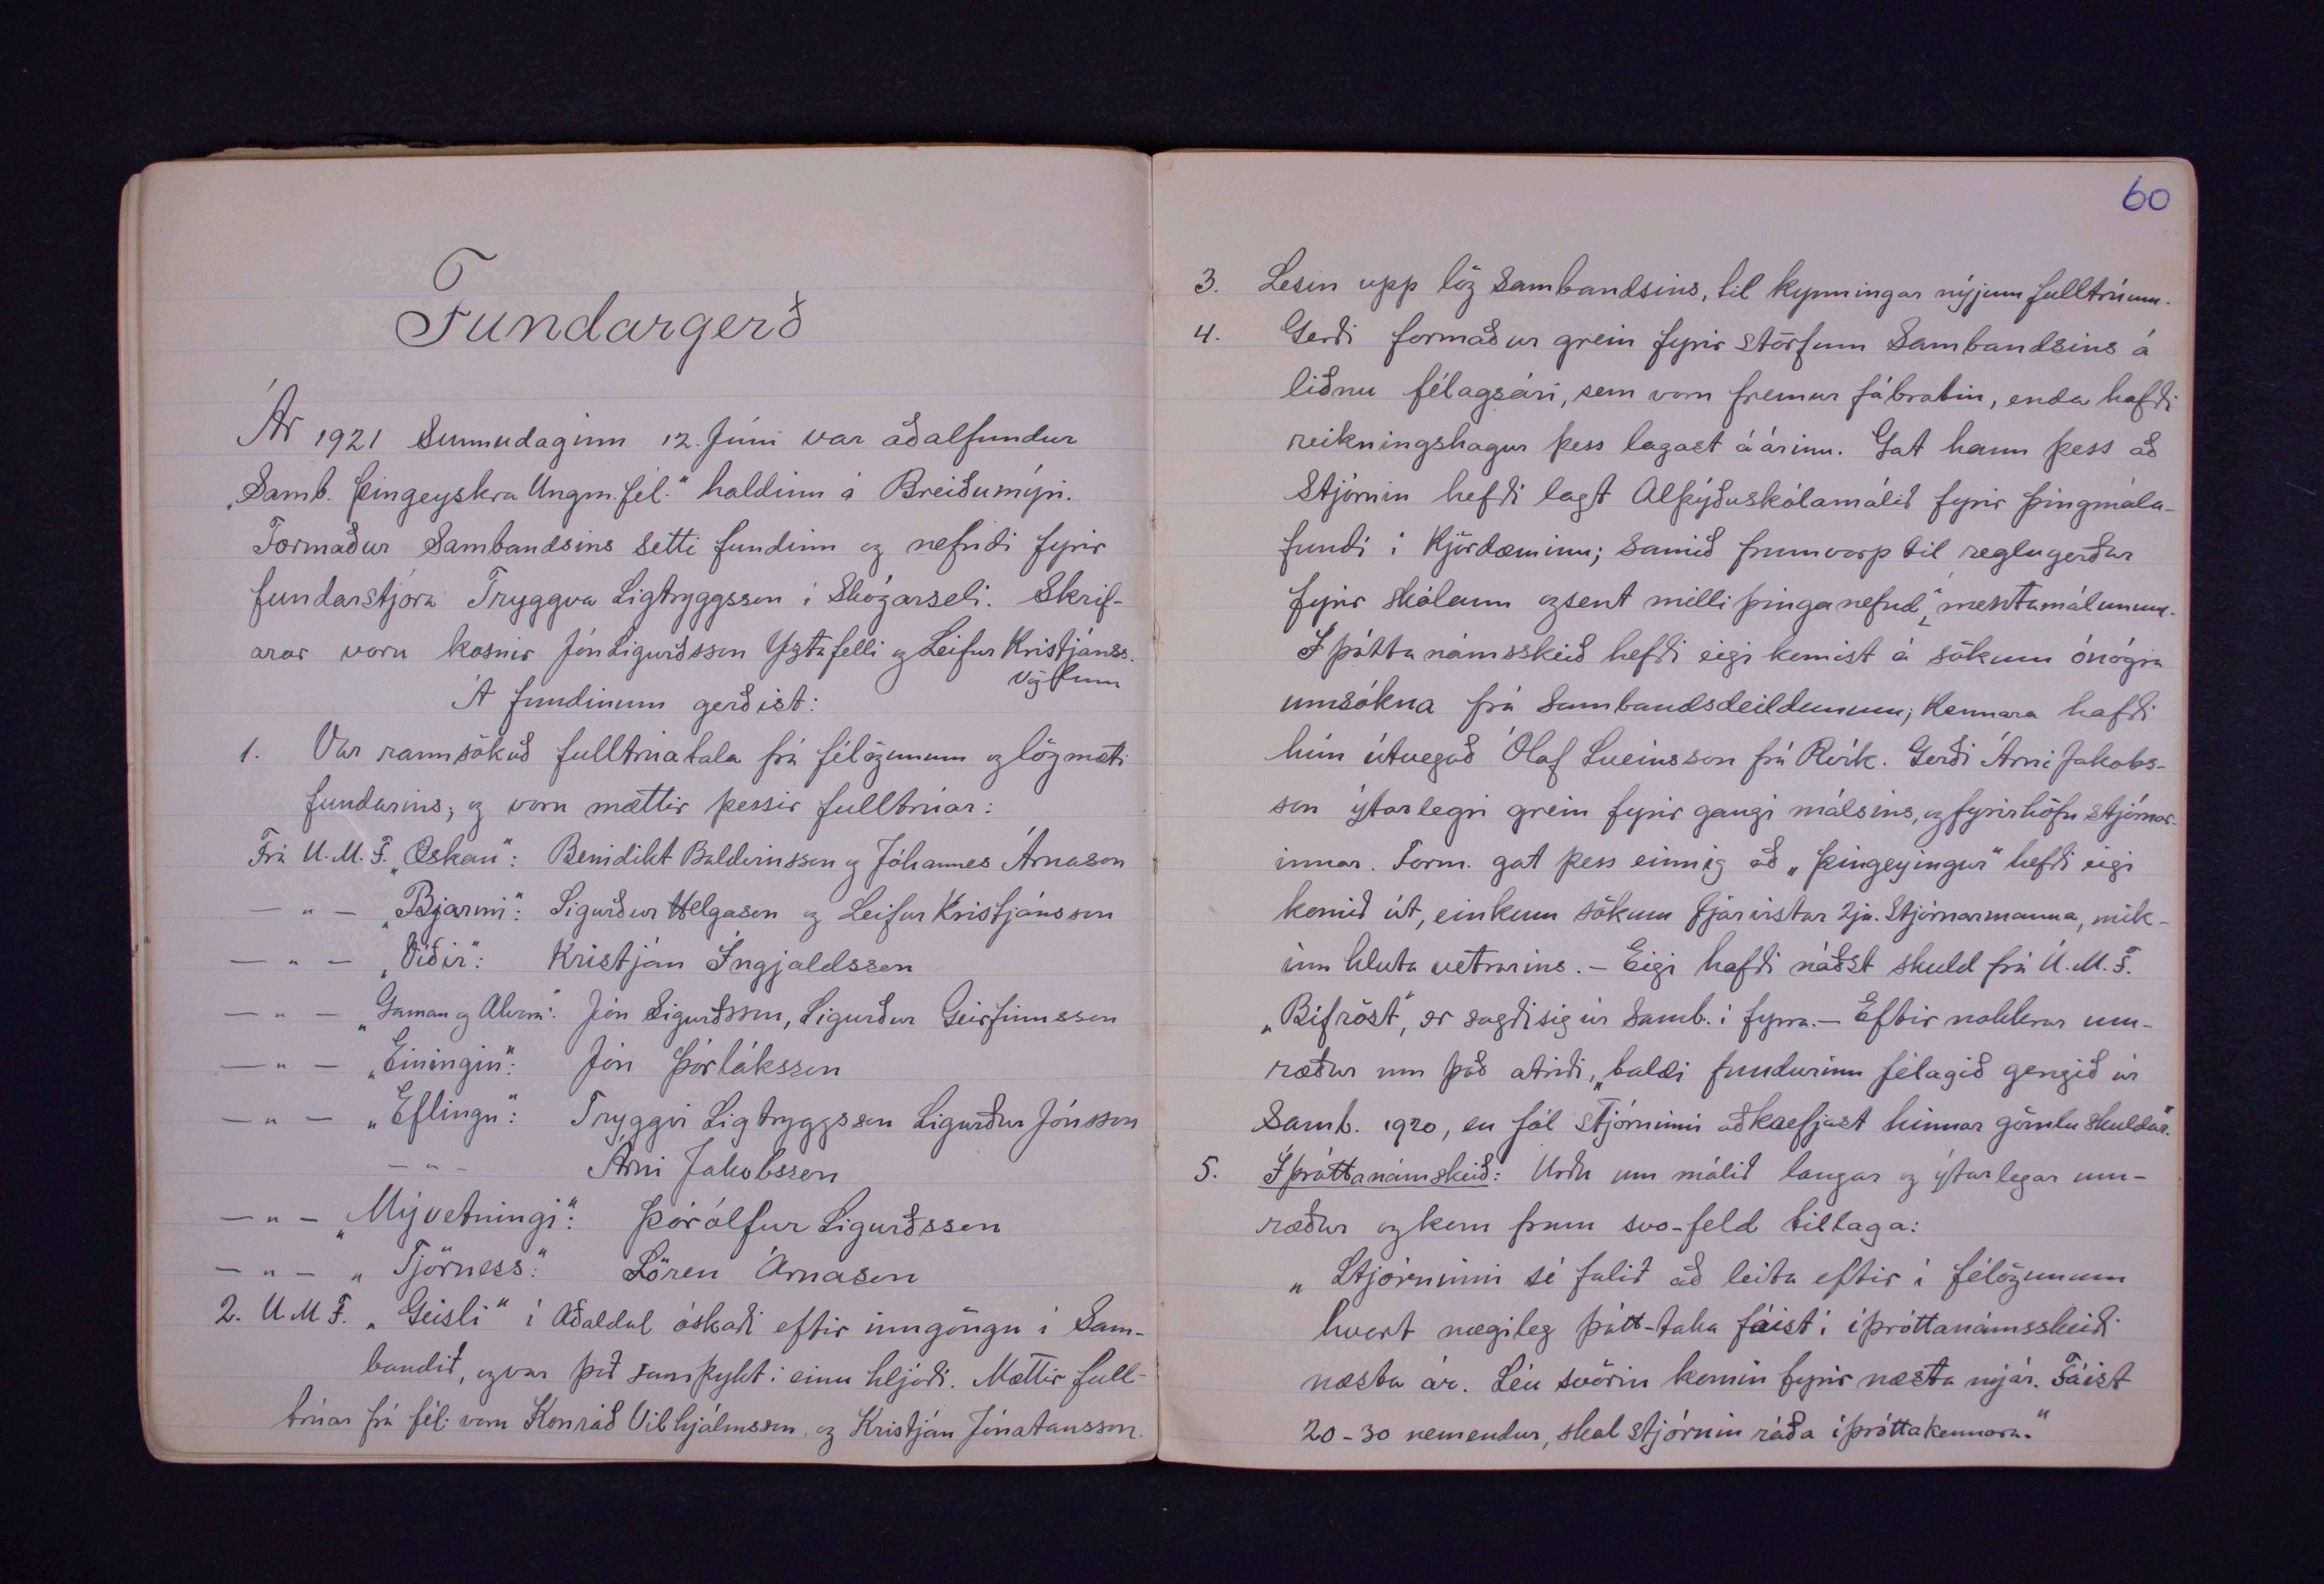 Fundargerð
Ár 1921 Sunnudaginn 12. Júni var aðalfundur
„Samb. þingeyskra Ungm. fél." haldinn á Breiðumýri.
Formaður Sambandsins setti fundinn og nefndi fyrir
fundarstjóra Tryggva Sigtryggsson í Skógarseli. Skrif-
arar voru kosnir Jón Sigurðsson Ystafelli og Leifur Kristjánss.
Vöglum
Á fundinum gerðist:
1. Var rannsökuð fulltrúatala frá félögunum og lögmæti
fundarins; og voru mættir þessir fulltrúar:
Frá U.M.F. „Æskan": Benidikt Baldvinsson og Jóhannes Árnason
— " — „Bjarmi": Sigurður Helgason og Leifur Kristjánsson
— " — „Víðir": Kristján Ingjaldsson
— " — „Gaman og Alvara": Jón Sigurðsson, Sigurður Geirfinnsson
— " — „Einingin": Jón Þórláksson
— " — „Eflingu": Tryggvi Sigtryggsson Sigurður Jónsson
— " — Árni Jakobsson
— " — „Mývetningi": Þórólfur Sigurðsson
— " — „Tjörness": Sören Árnason
2. U M F. „Geisli" í Aðaldal óskaði eftir inngöngu í Sam-
bandið, og var það samþykt í einu hljóði. Mættir full-
trúar frá fél. voru Konráð Vilhjálmsson og Kristján Jónatansson.
60
3. Lesin upp lög Sambandsins, til kynningar nýjum fulltrúum.
4. Gerði formaður grein fyrir störfum Sambandsins á
liðnu félagsári, sem voru fremur fábratin, enda hafði
reikningshagur þess lagast á árinu. Gat hann þess að
Stjórnin hefði lagt Alþýðuskólamálið fyrir þingmála-
fundi í Kjördæminu; samið frumvarp til reglugerðar
fyrir skólann og sent milliþinganefnd í mentamálunum.
Íþóttanámsskeið hefði eigi komist á sökum ónógra
umsókna frá Sambandsdeildunum; Kennara hafði
hún útvegað Ólaf Sveinsson frá Rvík. Gerði Árni Jakobs-
son ýtarlegri grein fyrir gangi málsins, og fyrirhöfn stjórnar-
innar. Form. gat þess einnig að „Þingeyingur" hefði eigi
komið út, einkum sökum fjarvistar 2ja. Stjórnarmanna, mik-
inn hluta vetrarins. — Eigi hafði náðst skuld frá U.M.F.
„Bifröst", er sagði sig úr Samb. í fyrra. — Eftir nokkrar um-
ræður um það atriði, „taldi fundurinn félagið gengið úr
Samb. 1920, en fól stjórninni að krefjast hinnar gömlu skuldar".
5. Íþróttanámskeið: Urðu um málið langar og ýtarlegar um-
ræður og kom fram svo-feld tillaga:
„Stjórninni sé falið að leita eftir í félögunum
hvort nægileg þátt-taka fáist í íþróttanámsskeiði
næsta ár. Séu svörin komin fyrir næsta nýjár. Fáist
20-30 nemendur, skal stjórnin ráða íþróttakennara."